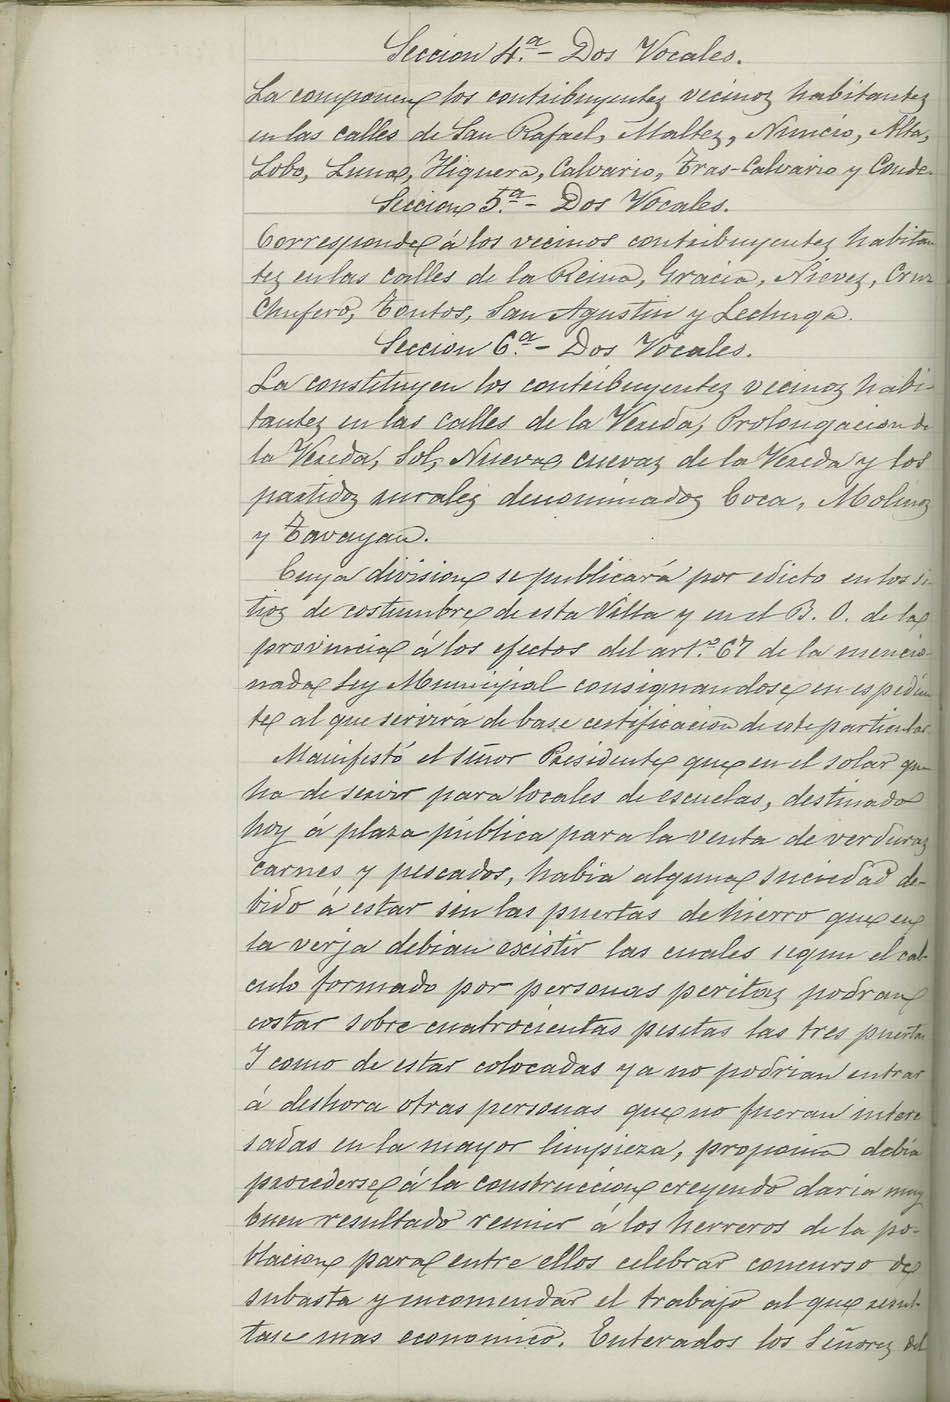 Seccion 4.ª - Dos Vocales.
La componen los contribuyentes vecinos habitantes
en las calles de San Rafael, Maltez, Nuncio, Alta,
Lobo, Luna, Higuera, Calvario, Tras-Calvario y Conde.
Seccion 5.ª - Dos Vocales.
Corresponde á los vecinos contribuyentes habitan
tes en las calles de la Reina, Gracia, Nieves, Cruz
Chufero, Tontos, San Agustin y Lechuga.
Seccion 6.ª - Dos Vocales.
La constituyen los contribuyentes vecinos habi-
tantes en las calles de la Vereda, Prolongacion de
la Vereda, Sol, Nueva, cuevas de la Vereda y los
partidos rurales denominados Coca, Molinos
y Tavayan.
Cuya division se publicará por edicto en los si-
tios de costumbre de esta Villa y en el B. O. de la
provincia á los efectos del art.º 67 de la mencio-
nada Ley Municipal consignandose en espedien
te al que servirá de base certificacion de este particular.
Manifestó el Señor Presidente que en el solar que
ha de servir para locales de escuelas, destinado
hoy á plaza pública para la venta de verduras
carnes y pescados, habia alguna suciedad de-
bido á estar sin las puertas de hierro que en
la verja debian existir las cuales segun el cal-
culo formado por personas peritas podran
costar sobre cuatrocientas pesetas las tres puertas
Y como de estar colocadas ya no podrian entrar
á deshora otras personas que no fueran intere
sadas en la mayor limpieza, proponia debia
procederse á la construccion creyendo daria muy
buen resultado reunir á los herreros de la po-
blacion para entre ellos celebrar concurso de
subasta y encomendar el trabajo al que resul-
tase mas economico. Enterados los Señores del